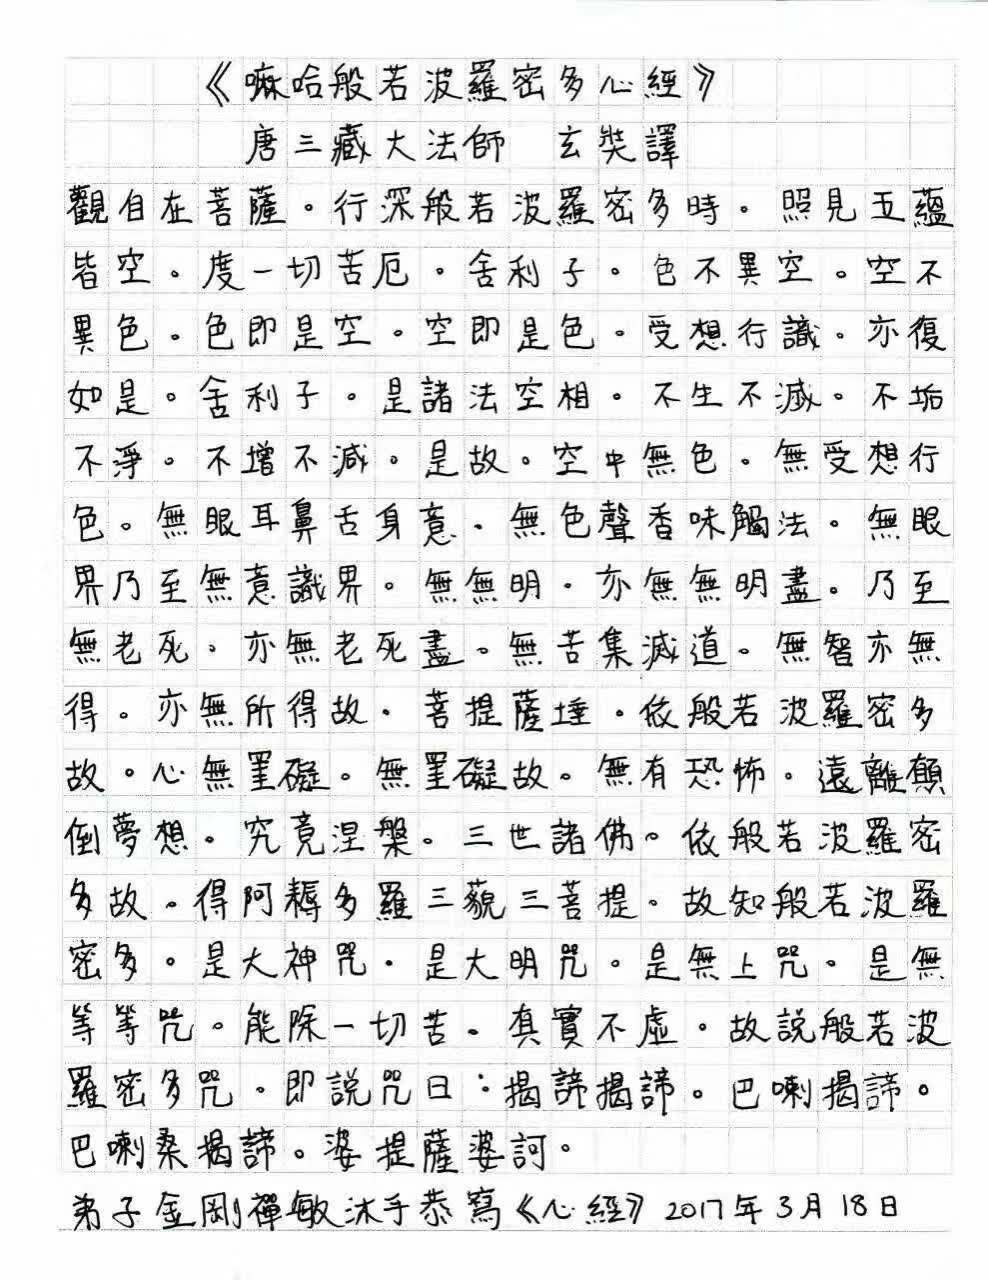 《嘛哈般若波羅密多心經》
唐三藏大法師　玄奘譯
觀自在菩薩。行深般若波羅密多時。照見五蘊
皆空。度一切苦厄。舍利子。色不異空。空不
異色。色即是空。空即是色。受想行識。亦復
如是。舍利子。是諸法空相。不生不滅。不垢
不淨。不增不減。是故。空中無色。無受想行
色。無眼耳鼻舌身意。無色聲香味觸法。無眼
界乃至無意識界。無無明。亦無無明盡。乃至
無老死。亦無老死盡。無苦集滅道。無智亦無
得。亦無所得故。菩提薩埵。依般若波羅密多
故。心無罣礙。無罣礙故。無有恐怖。遠離顛
倒夢想。究竟涅槃。三世諸佛。依般若波羅密
多故。得阿耨多羅三藐三菩提。故知般若波羅
密多。是大神咒。是大明咒。是無上咒。是無
等等咒。能除一切苦。真實不虛。故說般若波
羅密多咒。即說咒曰：揭諦揭諦。巴喇揭諦。
巴喇桑揭諦。婆提薩婆訶。
弟子金剛禪敏沐手恭寫《心經》2017年3月18日